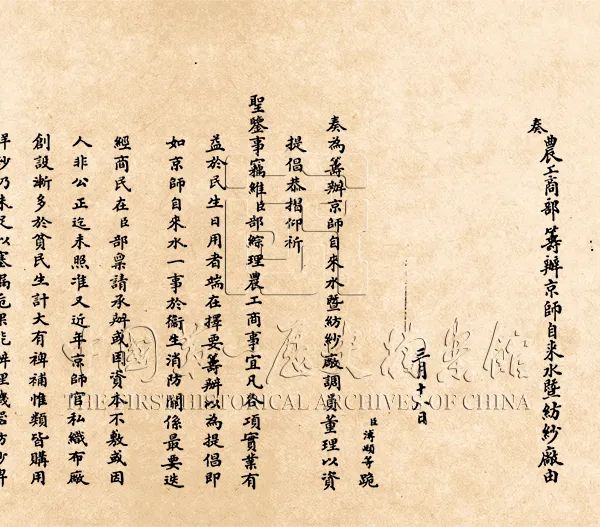 奏
農工商部 籌辦京師自来水暨紡紗廠由
三月十八日
臣溥頲等跪
奏為籌辦京師自来水暨紡紗廠調員董理以資
提倡恭摺仰祈
聖鑒事竊維臣部綜理農工商事宜凡各項實業有
益於民生日用者端在擇要籌辦以為提倡即
如京師自来水一事於衞生消防關係最要迭
經商民在臣部稟請承辦或因資本不敷或因
人非公正迄未照准又近年京師官私織布廠
創設漸多於貧民生計大有裨補惟類皆購用
中國第一歷史檔案館
THE FIRST HISTORICAL ARCHIVES OF CHINA